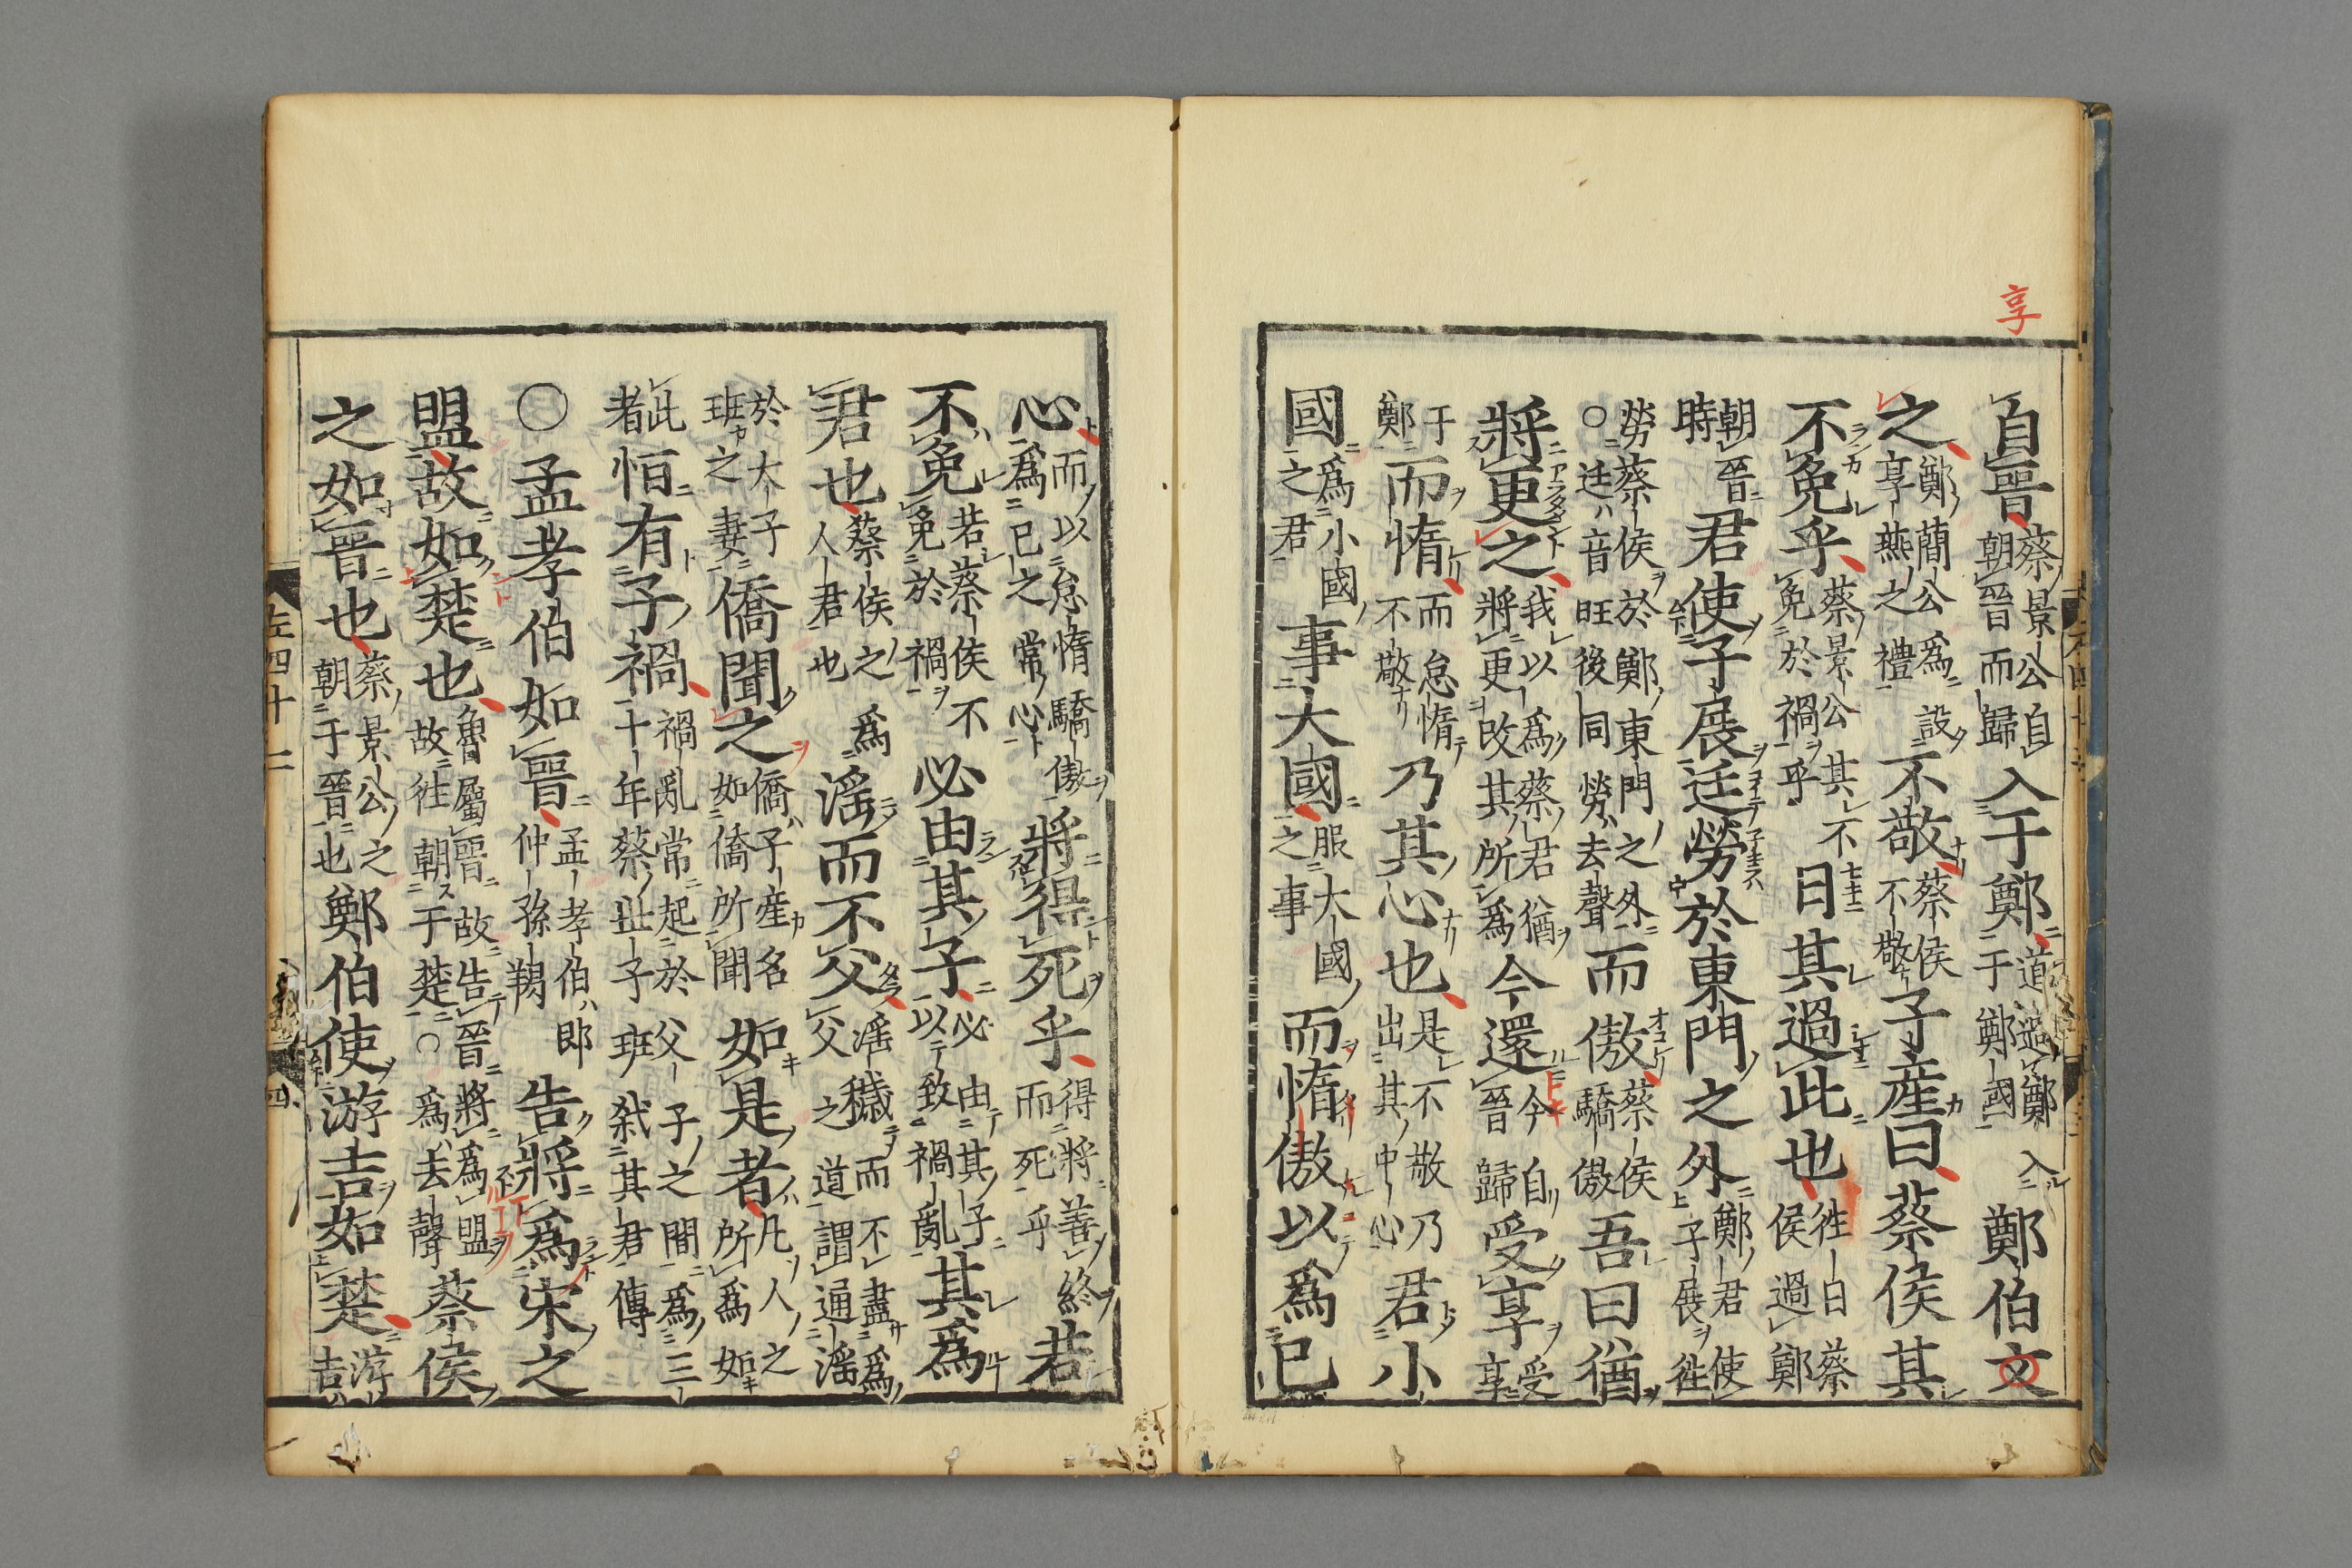 享
自晉蔡景公自朝晉而歸入于鄭道過鄭入于鄭國鄭伯文
之鄭簡公爲設享燕之禮不敬蔡侯不敬子産曰蔡侯其
不免乎蔡景公其不免於禍乎日其過此也徃日蔡侯過鄭
朝晉時君使子展迋勞於東門之外鄭君使子展徃
勞蔡侯於鄭東門之外○迋音旺後同勞去聲而傲蔡侯驕傲吾曰猶
將更之我以爲蔡君猶將更改其所爲今還今自晉歸受享受享
于鄭而惰而怠惰不敬乃其心也是不敬乃出其中心君小
國爲小國之君事大國服大國之事而惰傲以爲已
心而以怠惰驕傲爲已之常心將得死乎得將善終而死乎若
不免若蔡侯不免於禍必由其子必由其子以致禍亂其爲
君也蔡侯之爲人君也滛而不父滛穢而不盡爲父之道謂通滛
於大子班之妻僑聞之僑子産名如僑所聞如是者凡人之所爲如
此者恒有子禍禍亂常起於父子之間爲三十年蔡世子班弑其君傳
○孟孝伯如晉孟孝伯即仲孫羯告將爲宋之
盟故如楚也魯屬晉故告晉將爲盟故徃朝于楚○爲去聲蔡侯
之如晉也蔡景公之朝于晉也鄭伯使游吉如楚游吉
左四十二
四